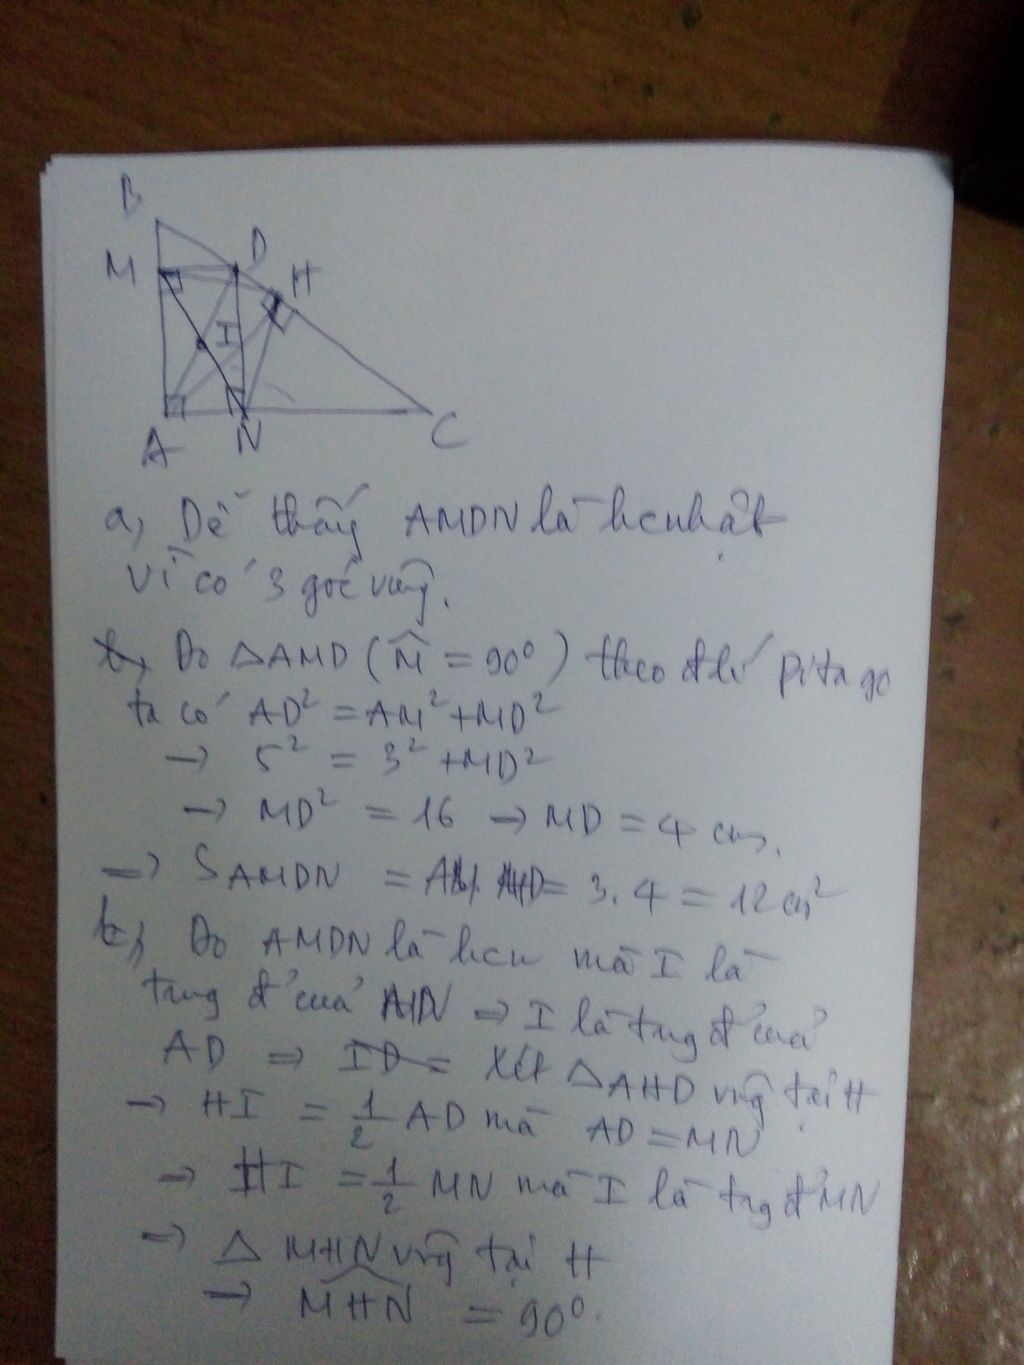 B
M
D
H
I
A
N
C
a, Dễ thấy AMDN là hcnhật
vì có 3 góc vuông.
b, Do ΔAMD (M̂ = 90⁰) theo đ lí pitago
ta có AD² = AM² + MD²
→ 5² = 3² + MD²
→ MD² = 16 → MD = 4 cm.
=> S AMDN = AM. MD = 3.4 = 12 cm²
c, Do AMDN là hcn mà I là
trung đ' của MN => I là trung đ' của
AD => ID = Xét ΔAHD vuông tại H
→ HI = 1/2 AD mà AD = MN
→ HI = 1/2 MN mà I là trung đ' MN
→ Δ MHN vuông tại H
→ M̂HN = 90⁰.